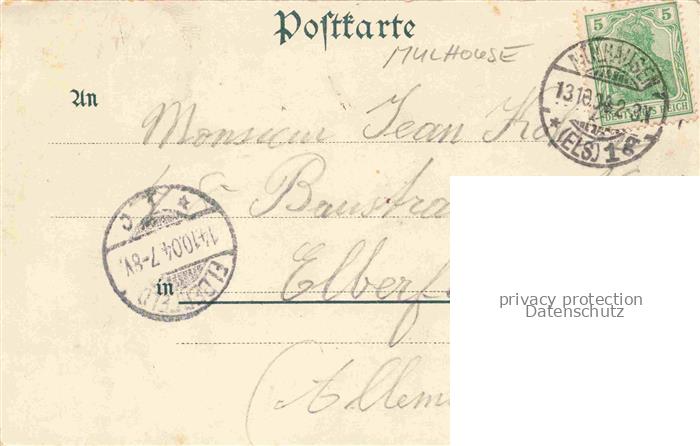 Postkarte
MULHOUSE
5 5
DEUTSCHES REICH
MÜLHAUSEN
13.10.04.2-3N
*(ELS.)1 g
An
Monsieur Jean
Baustra
14.10.04.7-8V.
ELBERFELD
in Elberf
Allem
privacy protection
Datenschutz